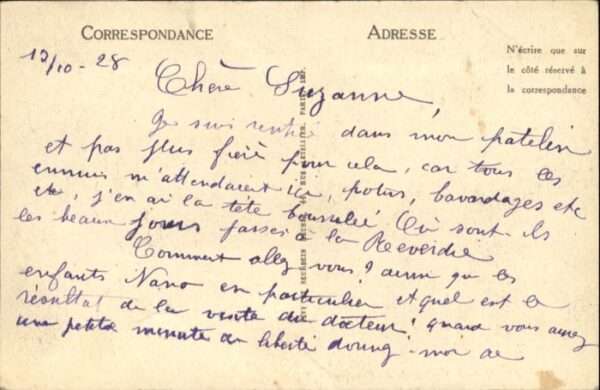 CORRESPONDANCE
ADRESSE
N'écrire que sur
le côté réservé à
la correspondance
13/10-28
Chère Suzanne,
Je suis rentrée dans mon patelin
et pas plus fière pour cela, car tous les
ennuis m'attendaient ici, potins, bavardages etc
etc, j'en ai la tête bourrelée! Où sont-ils
les beaux jours passés à la Reverdie
Comment allez vous? ainsi que les
enfants Nano en particulier et quel est le
résultat de la visite du docteur! quand vous aurez
une petite minute de liberté donnez-moi de